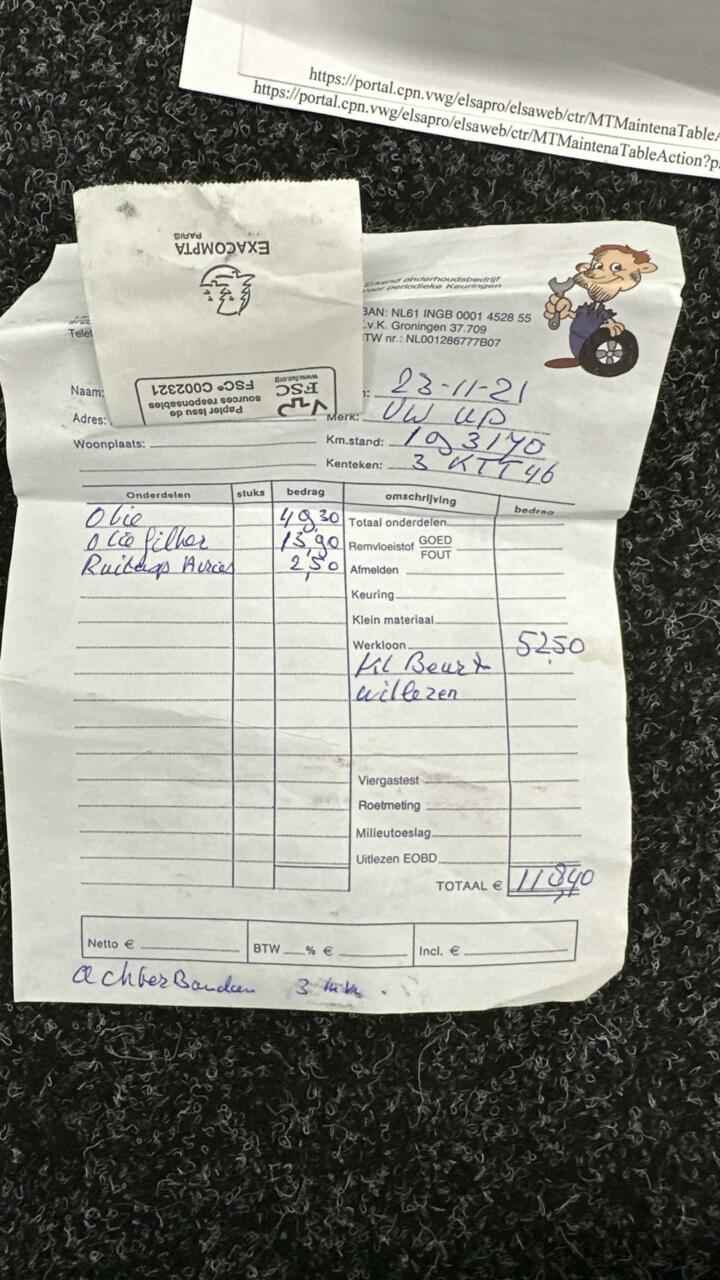 https://portal.cpn.vwg/elsapro/elsaweb/ctr/MTMaintenaTableA
https://portal.cpn.vwg/elsapro/elsaweb/ctr/MTMaintenaTableAction?p
EXACOMPTA
PARIS
FSC
www.fsc.org
FSC® C002321
Papier issu de
sources responsables
Erkend onderhoudsbedrijf
voor periodieke Keuringen
BAN: NL61 INGB 0001 4528 55
.v.K. Groningen 37.709
TW nr.: NL001286777B07
Telef
Naam:
23-11-21
Adres:
Merk: VW UP
Woonplaats:
Km.stand: 193170
Kenteken: 3 KTT 46
Onderdelen stuks bedrag omschrijving bedrag
Olie 49,30 Totaal onderdelen
Olie filter 13,90 Remvloeistof GOED
FOUT
2,50 Afmelden
Keuring
Klein materiaal
Werkloon 52,50
Kl Beurt
uitlezen
Viergastest
Roetmeting
Milieutoeslag
Uitlezen EOBD
TOTAAL €
Netto € BTW % € Incl. €
achterBanden 3 mm.